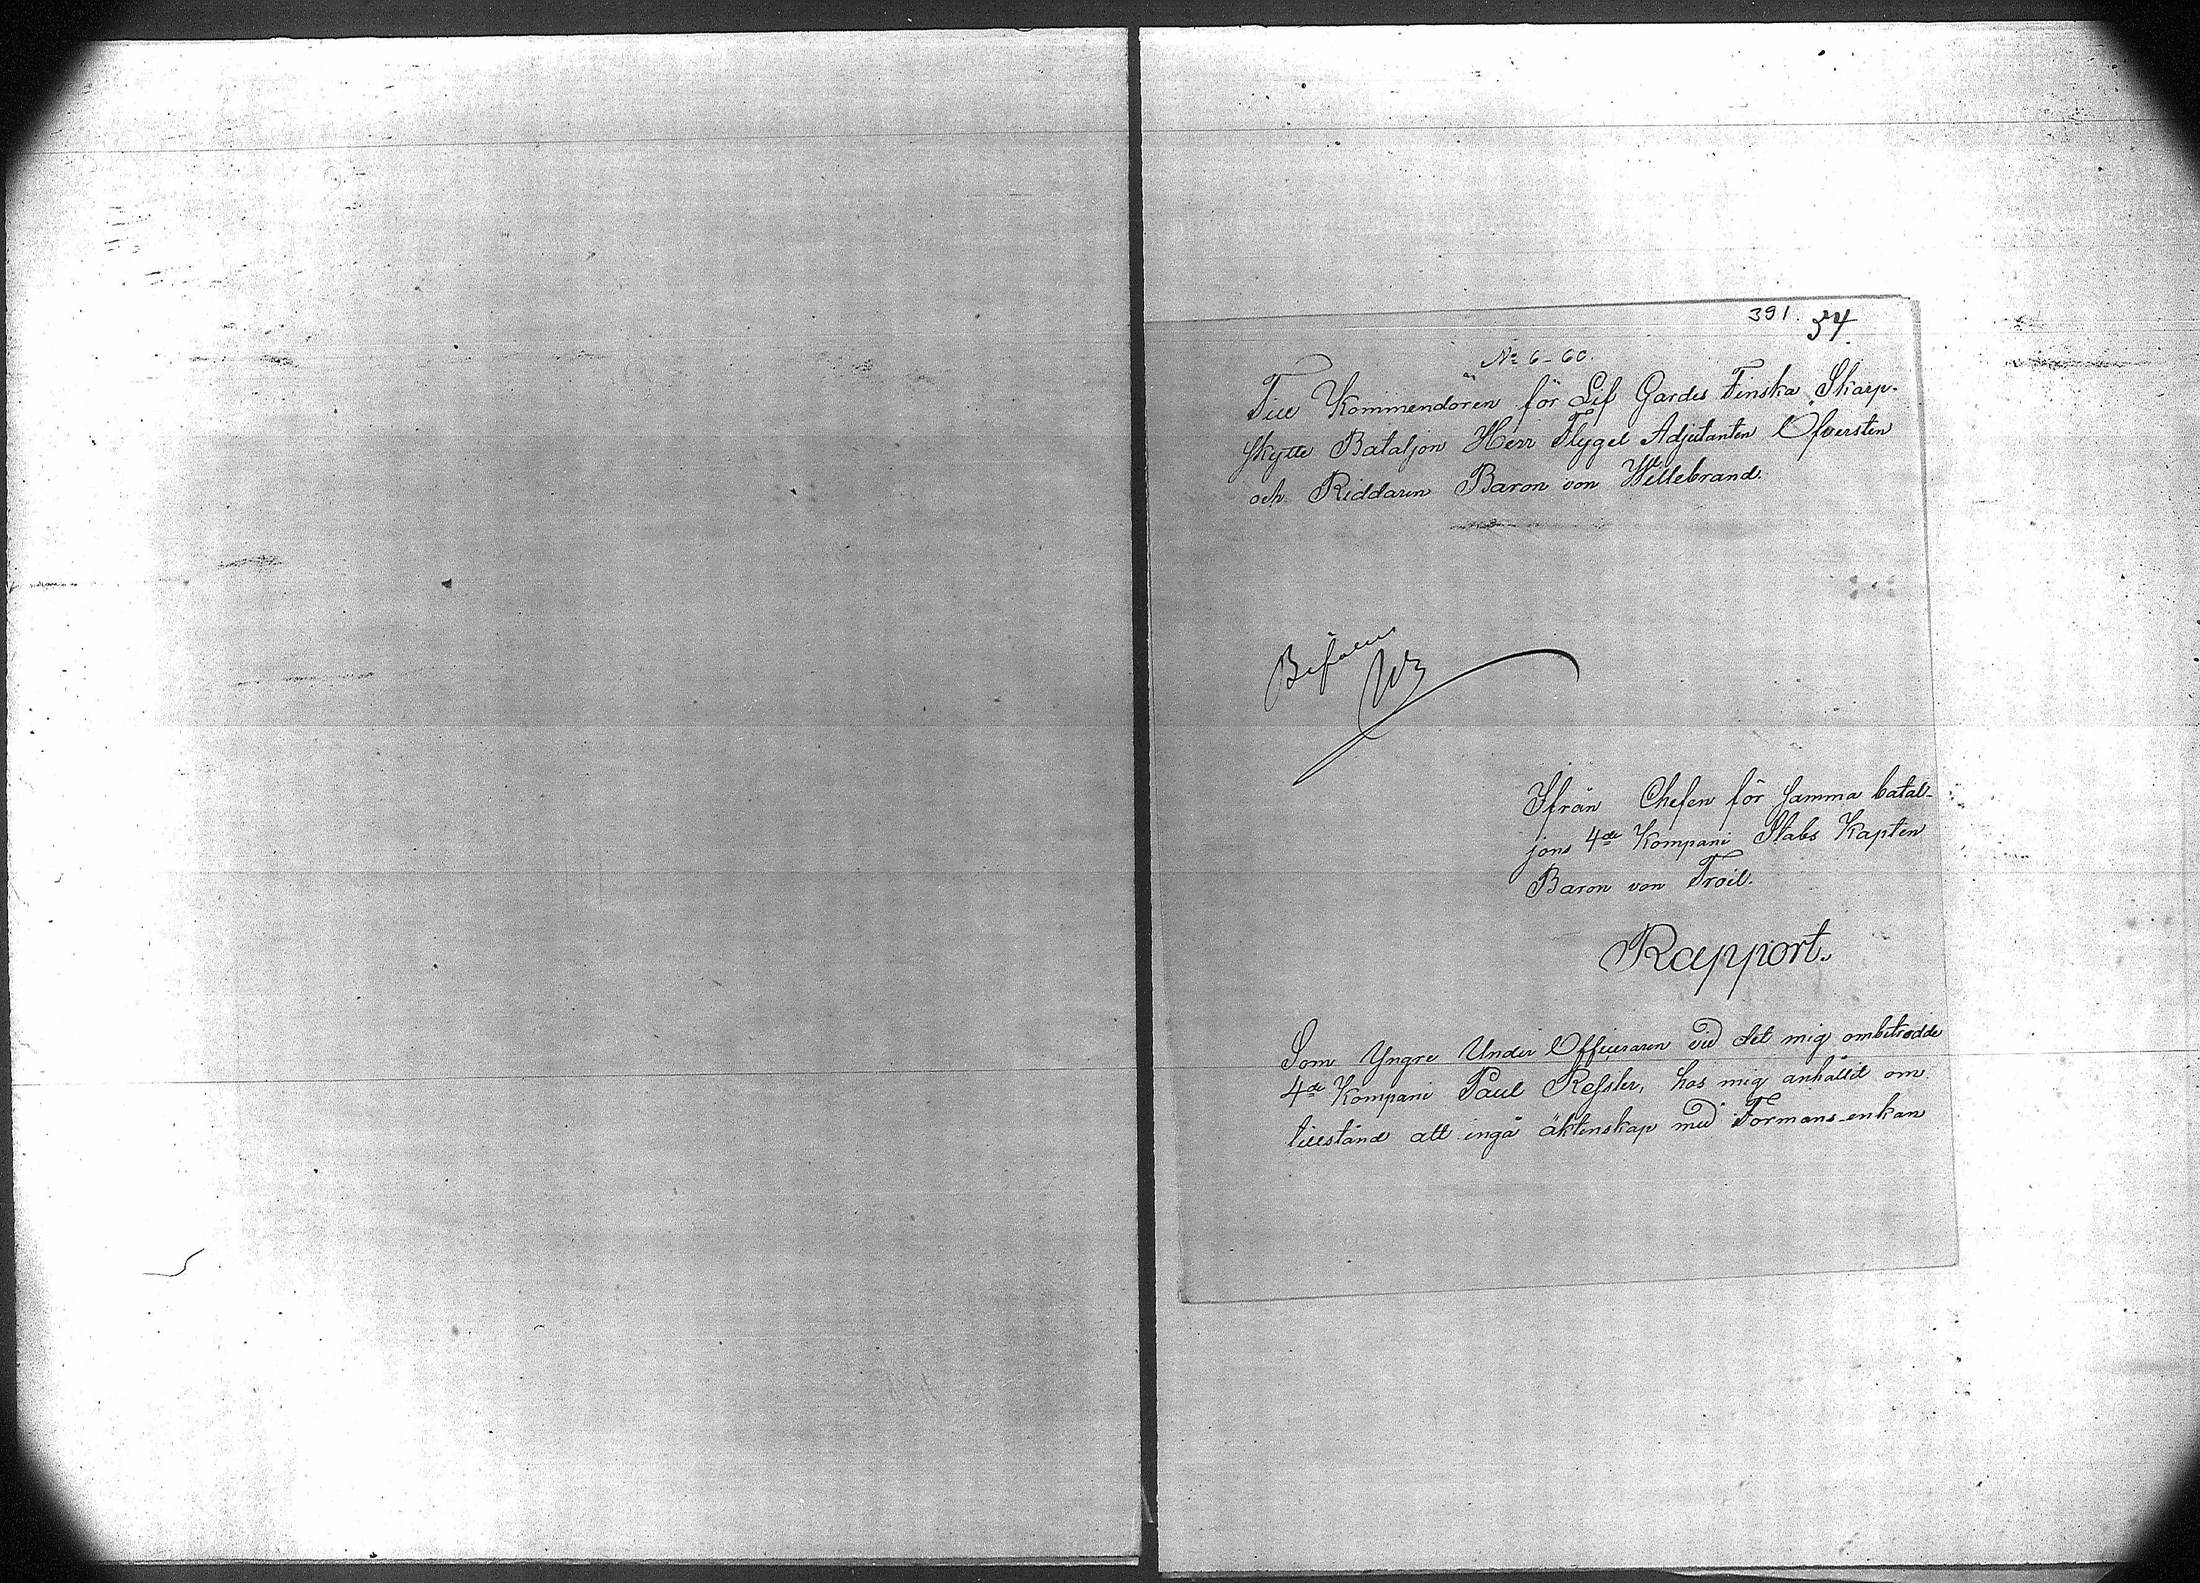 391. 54
No 6-60.
Till Kommendören för Lif Gardes Finska Skarp-
skytte Bataljon Herr Flygel Adjutanten Öfversten
och Riddaren Baron von Willebrand.
Bifalles
Ifrån Chefen för samma batal-
jons 4de Kompani Stabs Kapten
Baron von Troil.
Rapport.
Som Yngre Under Officeraren vid det mig ombetrodde
4de Kompani Paul Ressler, hos mig anhållit om
tillstånd att ingå äktenskap med Formans-enkan